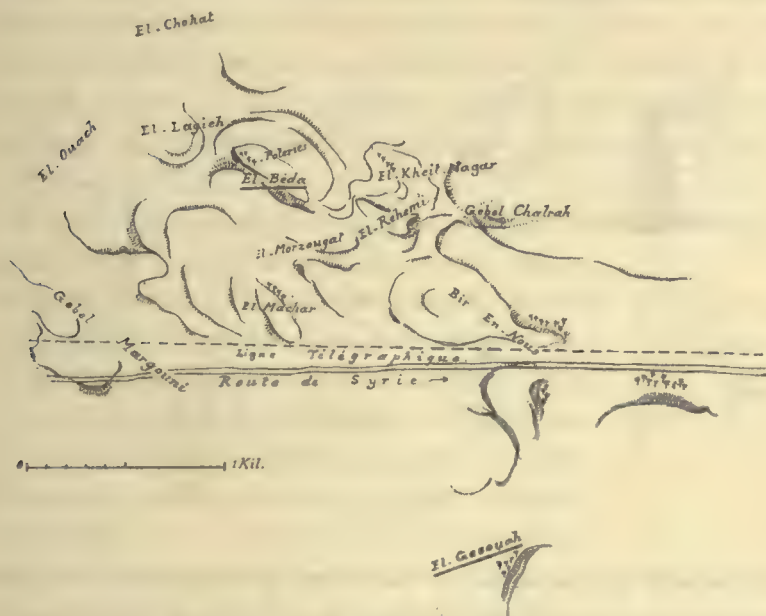 El-Chohat
El-Lagieh
El-Ouach
Poteries
El-Béda
El-Kheit Nagar
El-Rehemi
Gebel Chalrah
El-Morzougat
Gebel Margouni
El Machar
Bir En-Nous
Ligne Télégraphique.
Route de Syrie →
0 1 Kil.
El-Gesouah